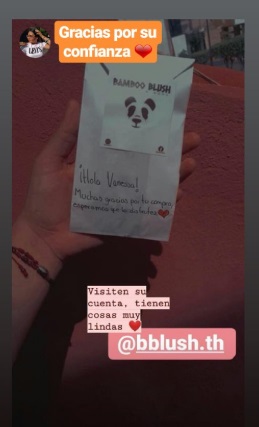 Gracias por su
confianza ❤️
BAMBOO BLUSH
¡Hola Vanessa!
Muchas gracias por tu compra,
esperamos que lo disfrutes ❤
Visiten su
cuenta, tienen
cosas muy
lindas ❤️
@bblush.th